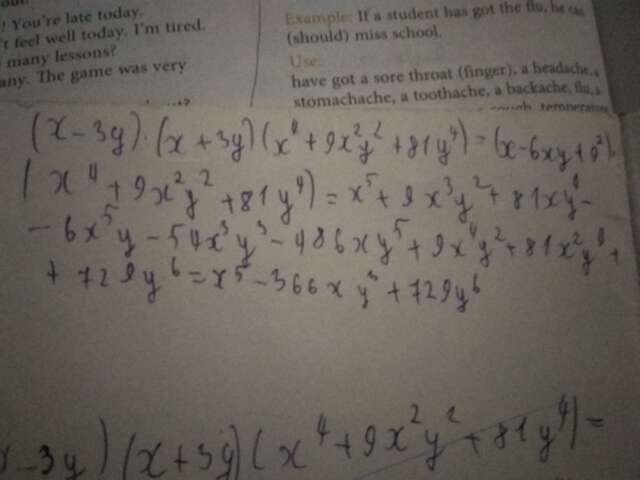 ! You're late today.
't feel well today. I'm tired.
many lessons?
any. The game was very
Example: If a student has got the flu, he can
(should) miss school.
Use:
have got a sore throat (finger), a headache, a
stomachache, a toothache, a backache, flu, a
(x-3y)·(x+3y)(x⁴+9x²y²+81y⁴)=(x-6xy+9²)·
(x⁴+9x²y²+81y⁴)=x⁵+9x³y²+81xy⁴-
-6x⁵y-54x³y³-486xy⁵+9x⁴y²+81x²y⁴+
+729y⁶=x⁵-366xy³+729y⁶
x-3y)(x+3y)(x⁴+9x²y²+81y⁴)=